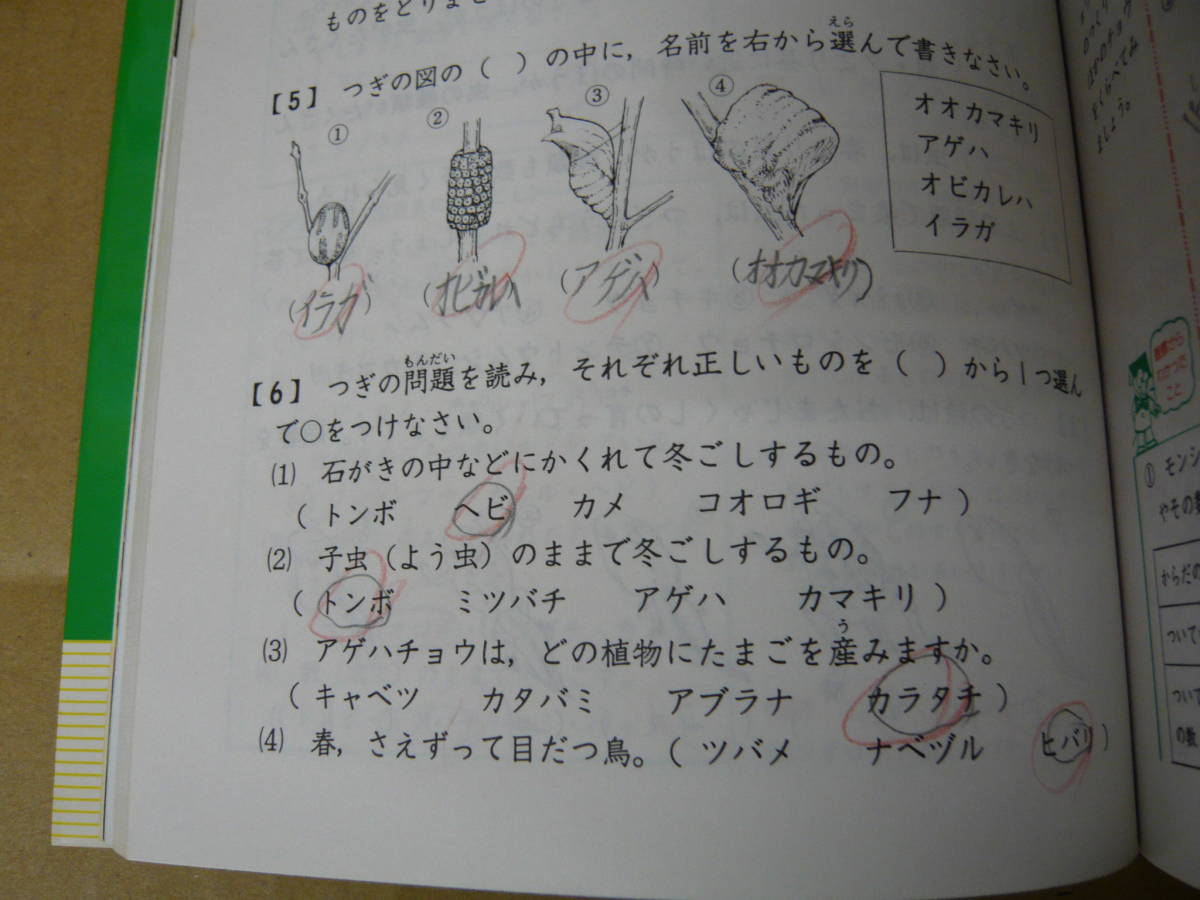 ものをとりませ
【5】 つぎの図の（ ）の中に，名前を右から選んで書きなさい。
えら
① ② ③ ④
オオカマキリ
アゲハ
オビカレハ
イラガ
(イラガ) (オビカレハ) (アゲハ) (オオカマキリ)
もんだい
【6】 つぎの問題を読み，それぞれ正しいものを（ ）から1つ選ん
で○をつけなさい。
⑴ 石がきの中などにかくれて冬ごしするもの。
（トンボ ヘビ カメ コオロギ フナ）
⑵ 子虫（よう虫）のままで冬ごしするもの。
（トンボ ミツバチ アゲハ カマキリ）
う
⑶ アゲハチョウは，どの植物にたまごを産みますか。
（キャベツ カタバミ アブラナ カラタチ）
⑷ 春，さえずって目だつ鳥。（ツバメ ナベヅル ヒバリ）
のつくり
ほかのチョウ
をくらべてみ
ましょう。
こと
① モンシ
やその
からだの
ついて
ついて
の数